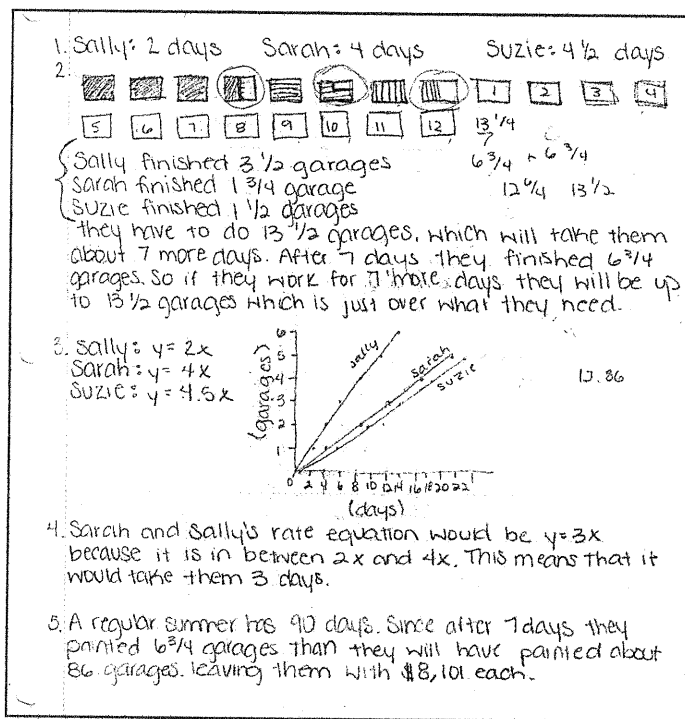 1. Sally: 2 days Sarah: 4 days Suzie: 4 1/2 days
2.
1 2 3 4
5 6 7 8 9 10 11 12 13 1/4
7
6 3/4 + 6 3/4
12 6/4 13 1/2
Sally finished 3 1/2 garages
Sarah finished 1 3/4 garage
Suzie finished 1 1/2 garages
they have to do 13 1/2 garages, which will take them
about 7 more days. After 7 days they finished 6 3/4
garages. So if they work for 7 more days they will be up
to 13 1/2 garages which is just over what they need.
3. Sally: y= 2x
Sarah: y= 4x
Suzie: y= 4.5x
(garages)
6
5
4
3
2
1
0 2 4 6 8 10 12 14 16 18 20 22
(days)
Sally
Sarah
Suzie
13.86
4. Sarah and Sally's rate equation would be y=3x
because it is in between 2x and 4x. This means that it
would take them 3 days.
5. A regular summer has 90 days. Since after 7 days they
painted 6 3/4 garages than they will have painted about
86 garages. leaving them with $8,101 each.